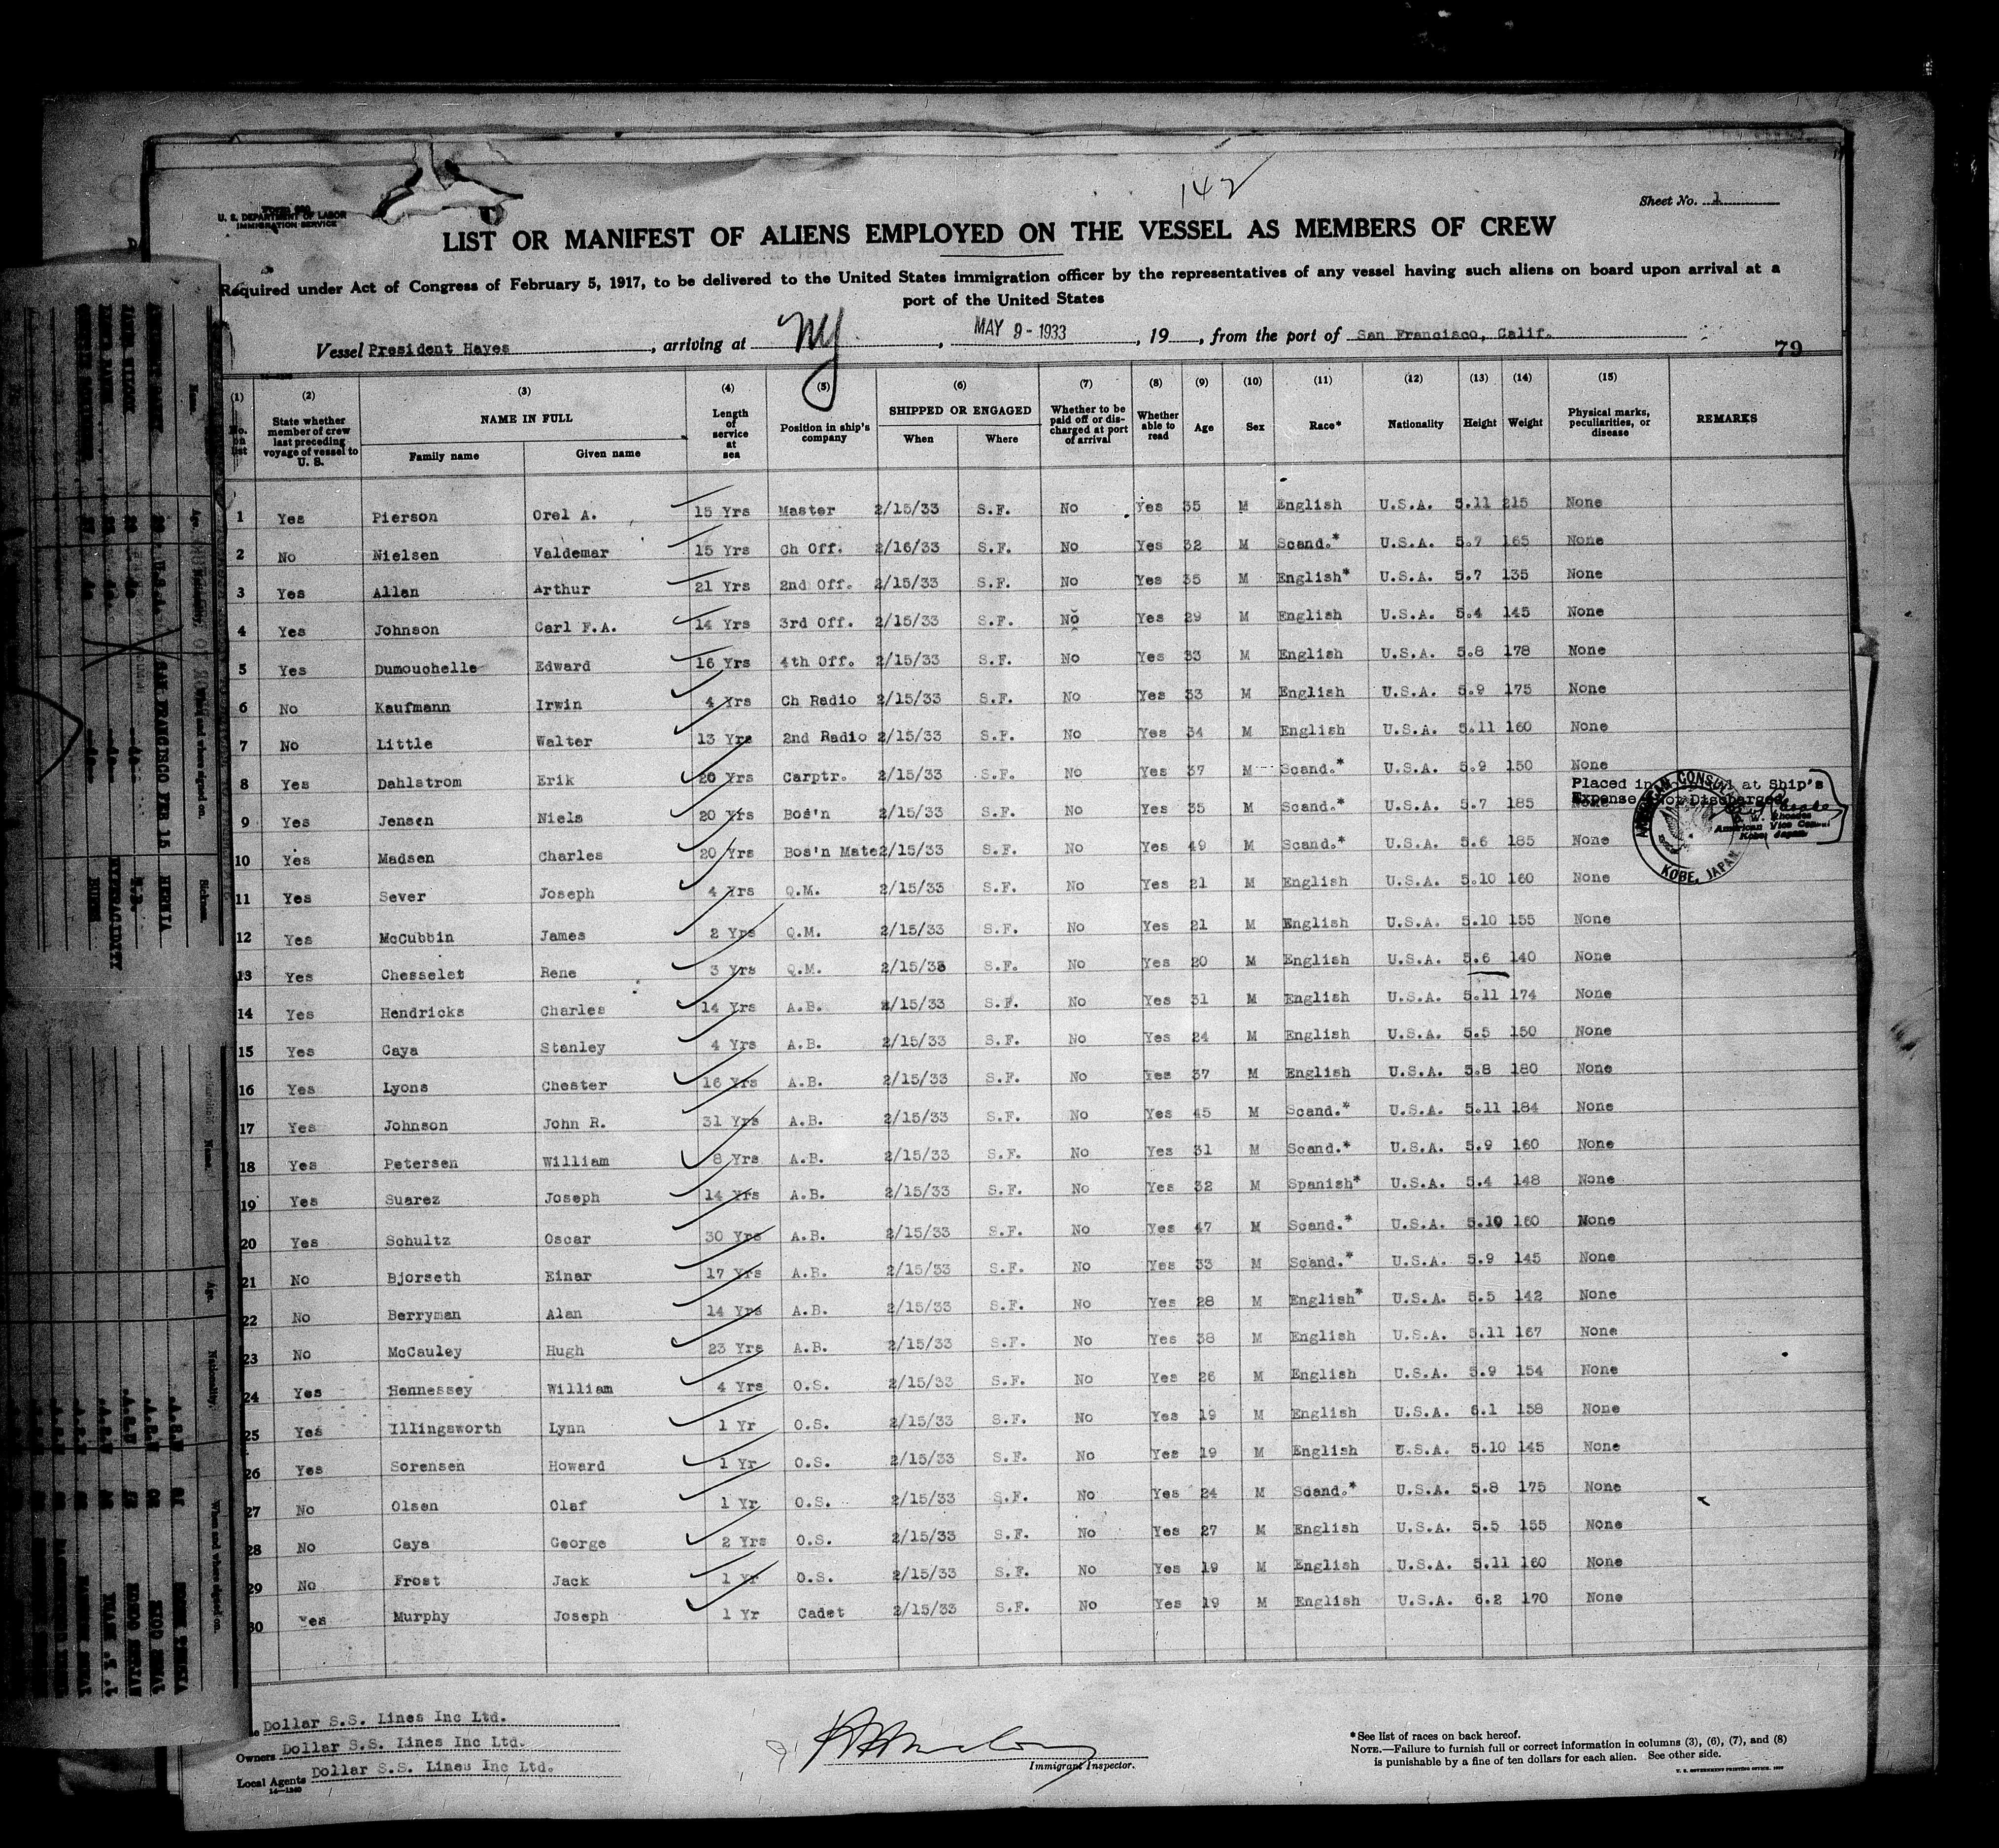 142
Sheet No. 1
Form 680
U. S. DEPARTMENT OF LABOR
IMMIGRATION SERVICE
LIST OR MANIFEST OF ALIENS EMPLOYED ON THE VESSEL AS MEMBERS OF CREW
Required under Act of Congress of February 5, 1917, to be delivered to the United States immigration officer by the representatives of any vessel having such aliens on board upon arrival at a
port of the United States
Vessel President Hayes, arriving at NY, MAY 9 - 1933, 19, from the port of San Francisco, Calif.
79
(1) No. on list (2) State whether member of crew last preceding voyage of vessel to U. S. (3) NAME IN FULL Family name Given name (4) Length of service at sea (5) Position in ship's company (6) SHIPPED OR ENGAGED When Where (7) Whether to be paid off or discharged at port of arrival (8) Whether able to read (9) Age (10) Sex (11) Race* (12) Nationality (13) Height (14) Weight (15) Physical marks, peculiarities, or disease REMARKS
1 Yes Pierson Orel A. 15 Yrs Master 2/15/33 S.F. No Yes 35 M English U.S.A. 5.11 215 None
2 No Nielsen Valdemar 15 Yrs Ch Off. 2/16/33 S.F. No Yes 32 M Scand.* U.S.A. 5.7 165 None
3 Yes Allan Arthur 21 Yrs 2nd Off. 2/15/33 S.F. No Yes 35 M English* U.S.A. 5.7 135 None
4 Yes Johnson Carl F.A. 14 Yrs 3rd Off. 2/15/33 S.F. No Yes 29 M English U.S.A. 5.4 145 None
5 Yes Dumouchelle Edward 16 Yrs 4th Off. 2/15/33 S.F. No Yes 33 M English U.S.A. 5.8 178 None
6 No Kaufmann Irwin 4 Yrs Ch Radio 2/15/33 S.F. No Yes 33 M English U.S.A. 5.9 175 None
7 No Little Walter 13 Yrs 2nd Radio 2/15/33 S.F. No Yes 34 M English U.S.A. 5.11 160 None
8 Yes Dahlstrom Erik 20 Yrs Carptr. 2/15/33 S.F. No Yes 37 M Scand.* U.S.A. 5.9 150 None
Placed in Hospital at Ship's
Expense Not Discharged
9 Yes Jensen Niels 20 Yrs Bos'n 2/15/33 S.F. No Yes 35 M Scand.* U.S.A. 5.7 185 None
W. Rhoades
American Vice Consul
Kobe, Japan
AMERICAN CONSULATE
KOBE, JAPAN
10 Yes Madsen Charles 20 Yrs Bos'n Mate 2/15/33 S.F. No Yes 49 M Scand.* U.S.A. 5.6 185 None
11 Yes Sever Joseph 4 Yrs Q.M. 2/15/33 S.F. No Yes 21 M English U.S.A. 5.10 160 None
12 Yes McCubbin James 2 Yrs Q.M. 2/15/33 S.F. No Yes 21 M English U.S.A. 5.10 155 None
13 Yes Chesselet Rene 3 Yrs Q.M. 2/15/33 S.F. No Yes 20 M English U.S.A. 5.6 140 None
14 Yes Hendricks Charles 14 Yrs A.B. 2/15/33 S.F. No Yes 31 M English U.S.A. 5.11 174 None
15 Yes Caya Stanley 4 Yrs A.B. 2/15/33 S.F. No Yes 24 M English U.S.A. 5.5 150 None
16 Yes Lyons Chester 16 Yrs A.B. 2/15/33 S.F. No Yes 37 M English U.S.A. 5.8 180 None
17 Yes Johnson John R. 31 Yrs A.B. 2/15/33 S.F. No Yes 45 M Scand.* U.S.A. 5.11 184 None
18 Yes Petersen William 8 Yrs A.B. 2/15/33 S.F. No Yes 31 M Scand.* U.S.A. 5.9 160 None
19 Yes Suarez Joseph 14 Yrs A.B. 2/15/33 S.F. No Yes 32 M Spanish* U.S.A. 5.4 148 None
20 Yes Schultz Oscar 30 Yrs A.B. 2/15/33 S.F. No Yes 47 M Scand.* U.S.A. 5.10 160 None
21 No Bjorseth Einar 17 Yrs A.B. 2/15/33 S.F. No Yes 33 M Scand.* U.S.A. 5.9 145 None
22 No Berryman Alan 14 Yrs A.B. 2/15/33 S.F. No Yes 28 M English* U.S.A. 5.5 142 None
23 No McCauley Hugh 23 Yrs A.B. 2/15/33 S.F. No Yes 38 M English U.S.A. 5.11 167 None
24 Yes Hennessey William 4 Yrs O.S. 2/15/33 S.F. No Yes 26 M English U.S.A. 5.9 154 None
25 Yes Illingsworth Lynn 1 Yr O.S. 2/15/33 S.F. No Yes 19 M English U.S.A. 6.1 158 None
26 Yes Sorensen Howard 1 Yr O.S. 2/15/33 S.F. No Yes 19 M English U.S.A. 5.10 145 None
27 No Olsen Olaf 1 Yr O.S. 2/15/33 S.F. No Yes 24 M Scand.* U.S.A. 5.8 175 None
28 No Caya George 2 Yrs O.S. 2/15/33 S.F. No Yes 27 M English U.S.A. 5.5 155 None
29 No Frost Jack 1 Yr O.S. 2/15/33 S.F. No Yes 19 M English U.S.A. 5.11 160 None
30 Yes Murphy Joseph 1 Yr Cadet 2/15/33 S.F. No Yes 19 M English U.S.A. 6.2 170 None
Dollar S.S. Lines Inc Ltd.
Owners Dollar S.S. Lines Inc Ltd.
Local Agents Dollar S.S. Lines Inc Ltd.
14—1240
Immigrant Inspector.
*See list of races on back hereof.
NOTE.—Failure to furnish full or correct information in columns (3), (6), (7), and (8)
is punishable by a fine of ten dollars for each alien. See other side.
U. S. GOVERNMENT PRINTING OFFICE